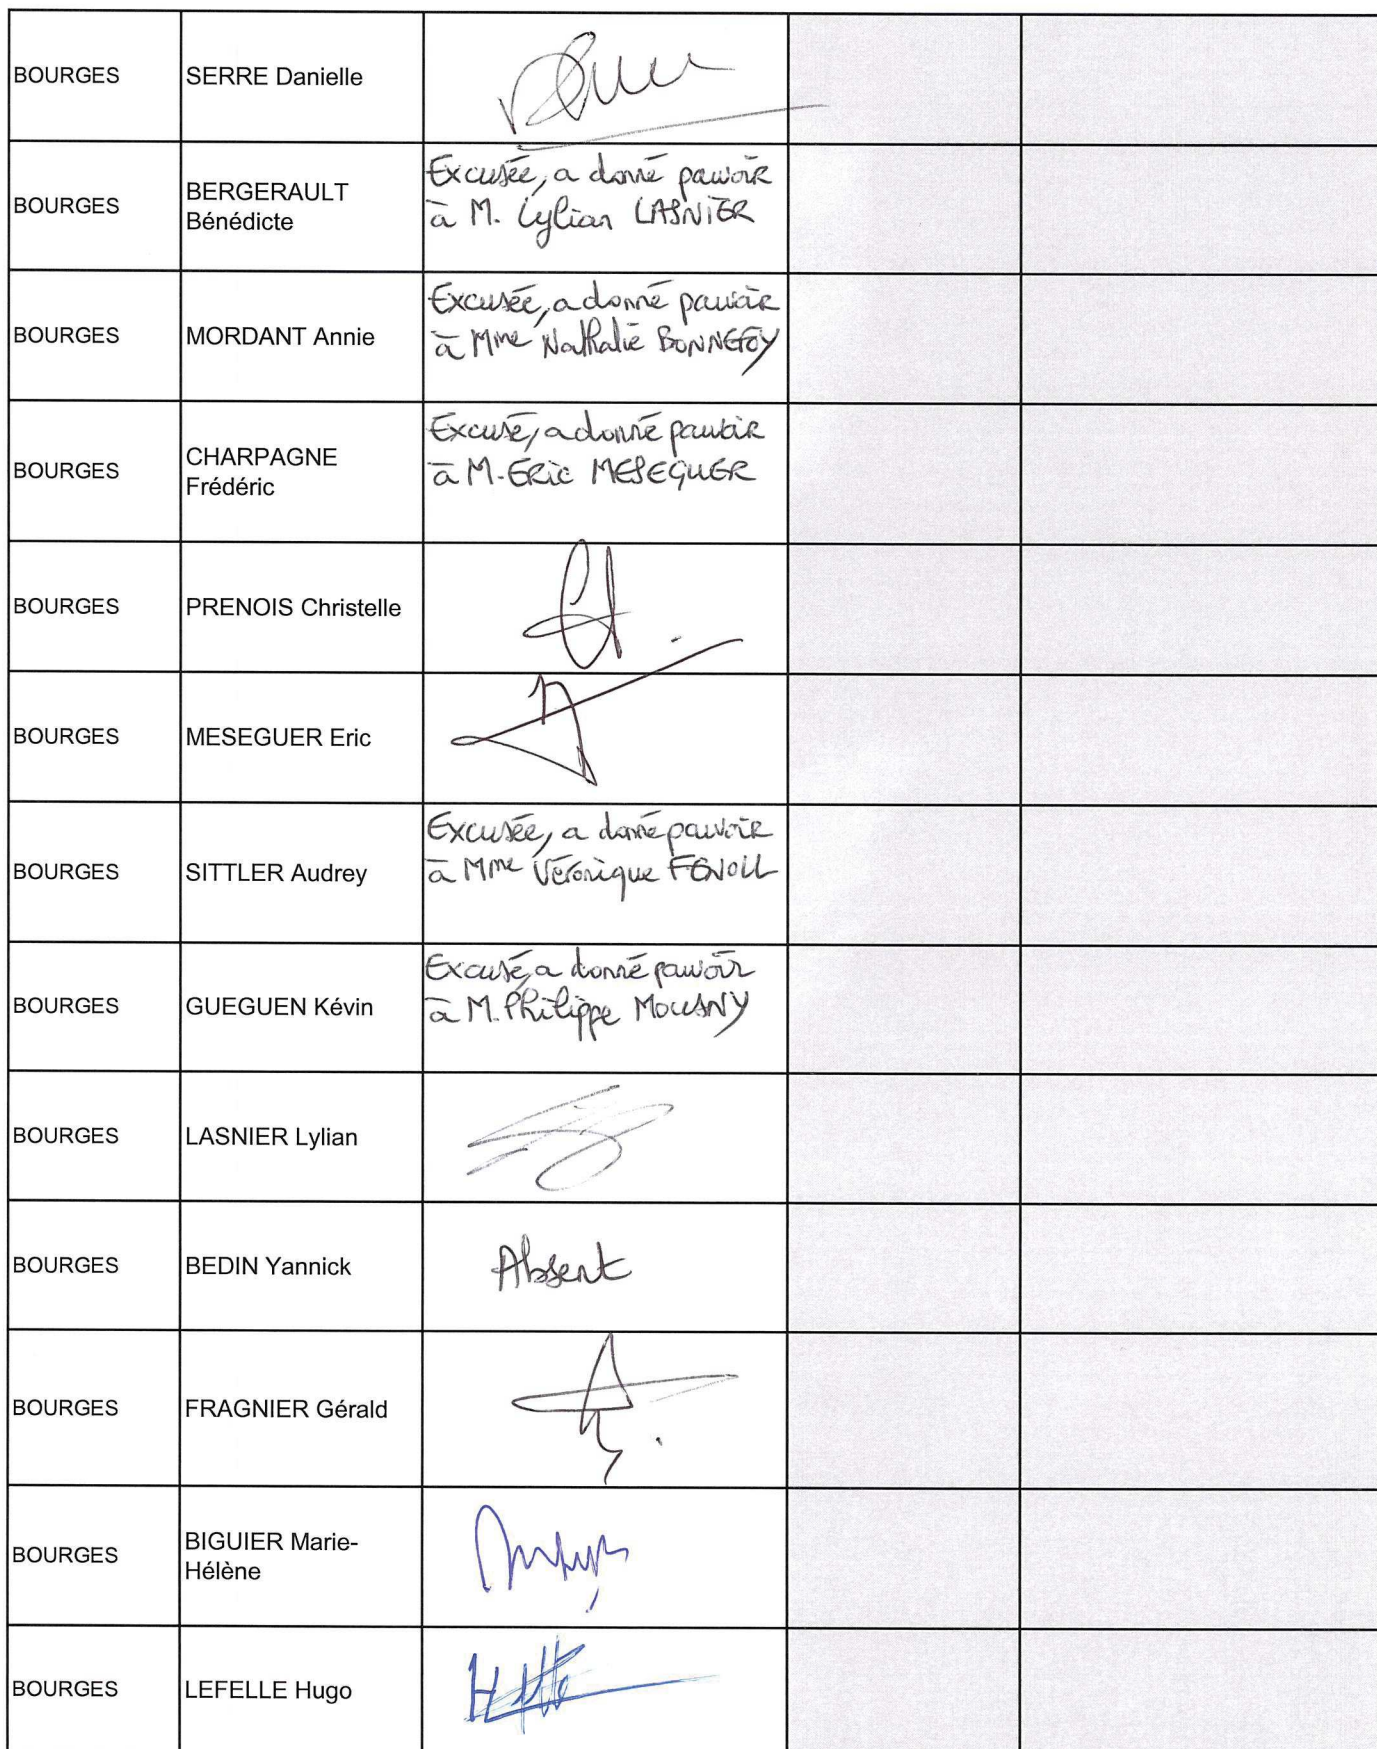 BOURGES
SERRE Danielle
BOURGES
BERGERAULT
Bénédicte
Excusée, a donné pouvoir
à M. Lylian LASNIER
BOURGES
MORDANT Annie
Excusée, a donné pouvoir
à Mme Nathalie BONNEFOY
BOURGES
CHARPAGNE
Frédéric
Excusé, a donné pouvoir
à M. Eric MESEGUER
BOURGES
PRENOIS Christelle
BOURGES
MESEGUER Eric
BOURGES
SITTLER Audrey
Excusée, a donné pouvoir
à Mme Véronique FENOLL
BOURGES
GUEGUEN Kévin
Excusé, a donné pouvoir
à M. Philippe MOUSNY
BOURGES
LASNIER Lylian
BOURGES
BEDIN Yannick
Absent
BOURGES
FRAGNIER Gérald
BOURGES
BIGUIER Marie-
Hélène
BOURGES
LEFELLE Hugo